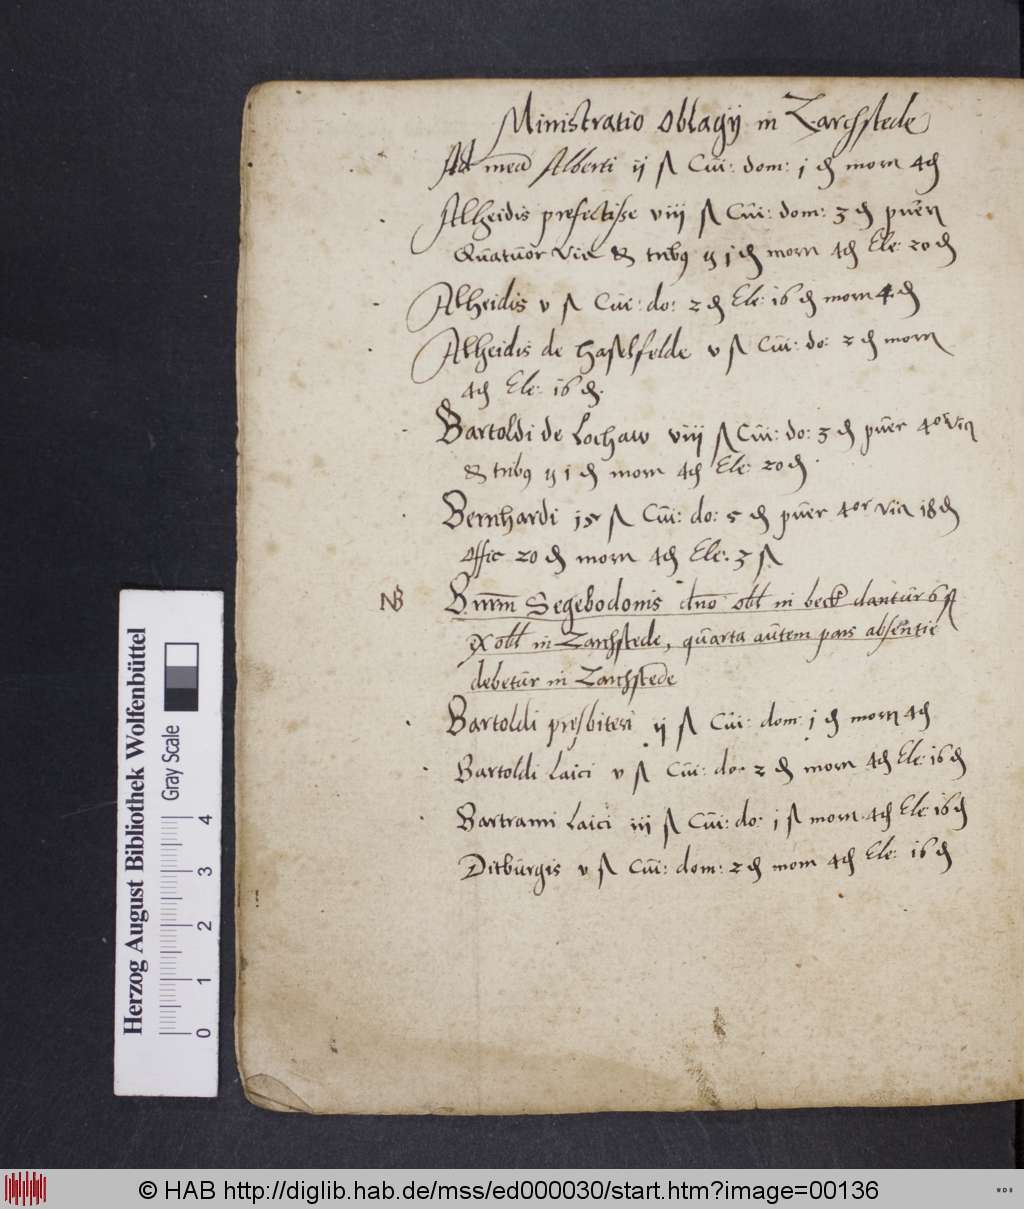 Ministratio oblagij in Zarchstede
Ad mea Alberti ij ß Cui: dom: j ₰ morn 4₰
Alheidis prefectisse viij ß Cui: dom: 3 ₰ puer
Quatuor Vic & trib9 ij j ₰ morn 4₰ Ele: 20 ₰
Alheidis v ß Cui: do: 2 ₰ Ele: 16 ₰ morn 4 ₰
Alheidis de Haselfelde v ß Cui: do: 2 ₰ morn
4₰ Ele: 16 ₰.
Bartoldi de Lochaw viij ß Cui: do: 3 ₰ puer 4or Vic
& trib9 ij j ₰ morn 4₰ Ele: 20 ₰
Bernhardi js ß Cui: do: 5 ₰ puer 4or Vic 18 ₰
offic 20 ₰ morn 4₰ Ele: 3 ß
NB Segebodonis dno obl in beck dantur 6 ß
ex obl in Zarchstede, quarta autem pars absentie
debetur in Zarchstede
Bartoldi presbiteri ij ß Cui: dom: j ₰ morn 4₰
Bartoldi Laici v ß Cui: do: 2 ₰ morn 4₰ Ele: 16 ₰
Bartrami Laici iij ß Cui: do: j ß morn 4₰ Ele: 16 ₰
Ditburgis v ß Cui: dom: 2 ₰ morn 4₰ Ele: 16 ₰
Herzog August Bibliothek Wolfenbüttel
Gray Scale
0 1 2 3 4
© HAB http://diglib.hab.de/mss/ed000030/start.htm?image=00136